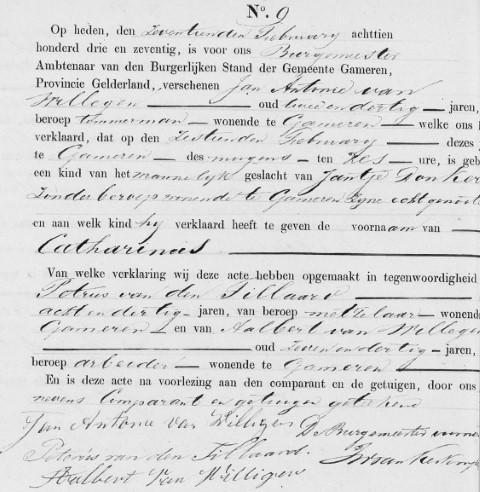 No. 9
Op heden, den zeventienden Februarij achttien
honderd drie en zeventig, is voor ons Burgemeester
Ambtenaar van den Burgerlijken Stand der Gemeente Gameren,
Provincie Gelderland, verschenen Jan Antonie van
Willegen oud tweeendertig jaren,
beroep timmerman wonende te Gameren welke ons
verklaard, dat op den zestienden Februarij dezes
te Gameren des morgens ten zes ure, is geb
een kind van het mannelijk geslacht van Jantje Donker
zonder beroep wonende te Gameren zijne echtgenoote
en aan welk kind hij verklaard heeft te geven de voornaam van
Catharinus
Van welke verklaring wij deze acte hebben opgemaakt in tegenwoordigheid
Petrus van den Tillaard
achtendertig jaren, van beroep metzelaar wonende
Gameren en van Aalbert van Willegen
oud zevenendertig jaren,
beroep arbeider wonende te Gameren
En is deze acte na voorlezing aan den comparant en de getuigen, door ons
nevens Comparant en getuigen geteekend
Jan Antonie van Willigen De Burgemeester voorn
Peterus van den Tillaard
Aalbert van Willigen